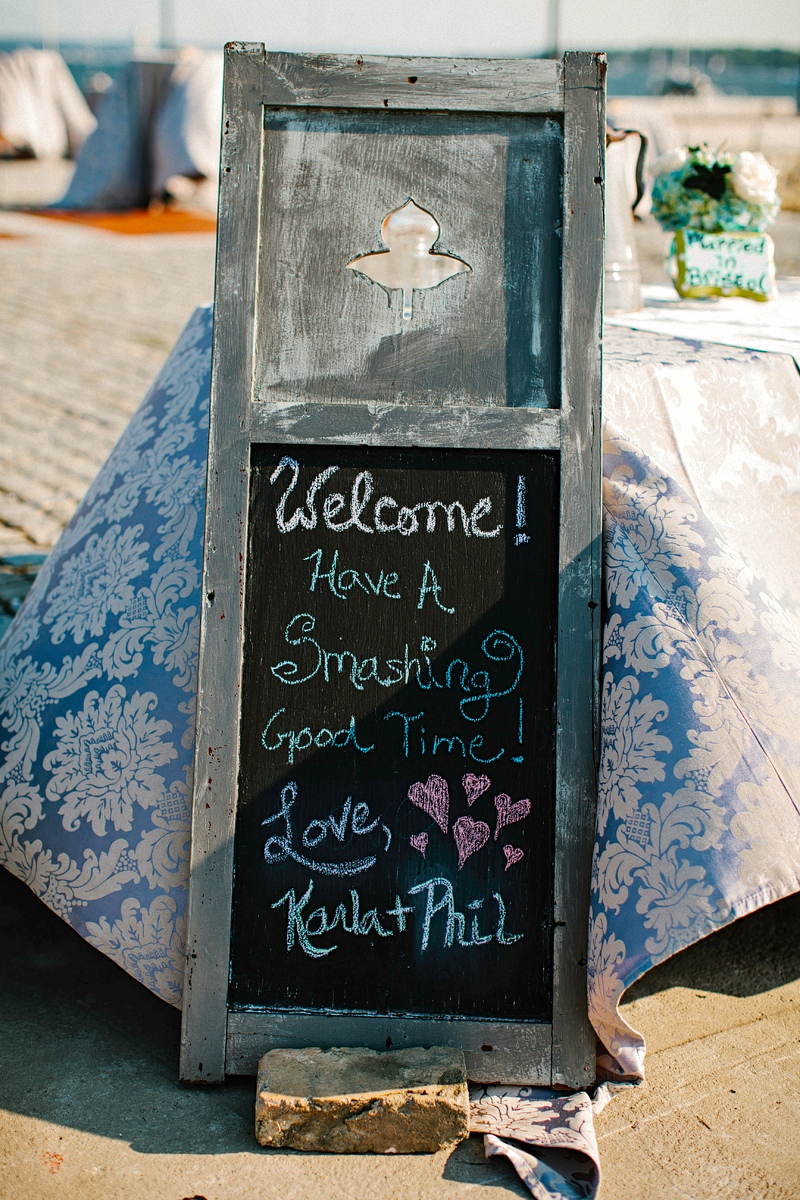 Welcome!
Have A
Smashing
Good Time!
Love,
Karla + Phil
Married
in
Bristol